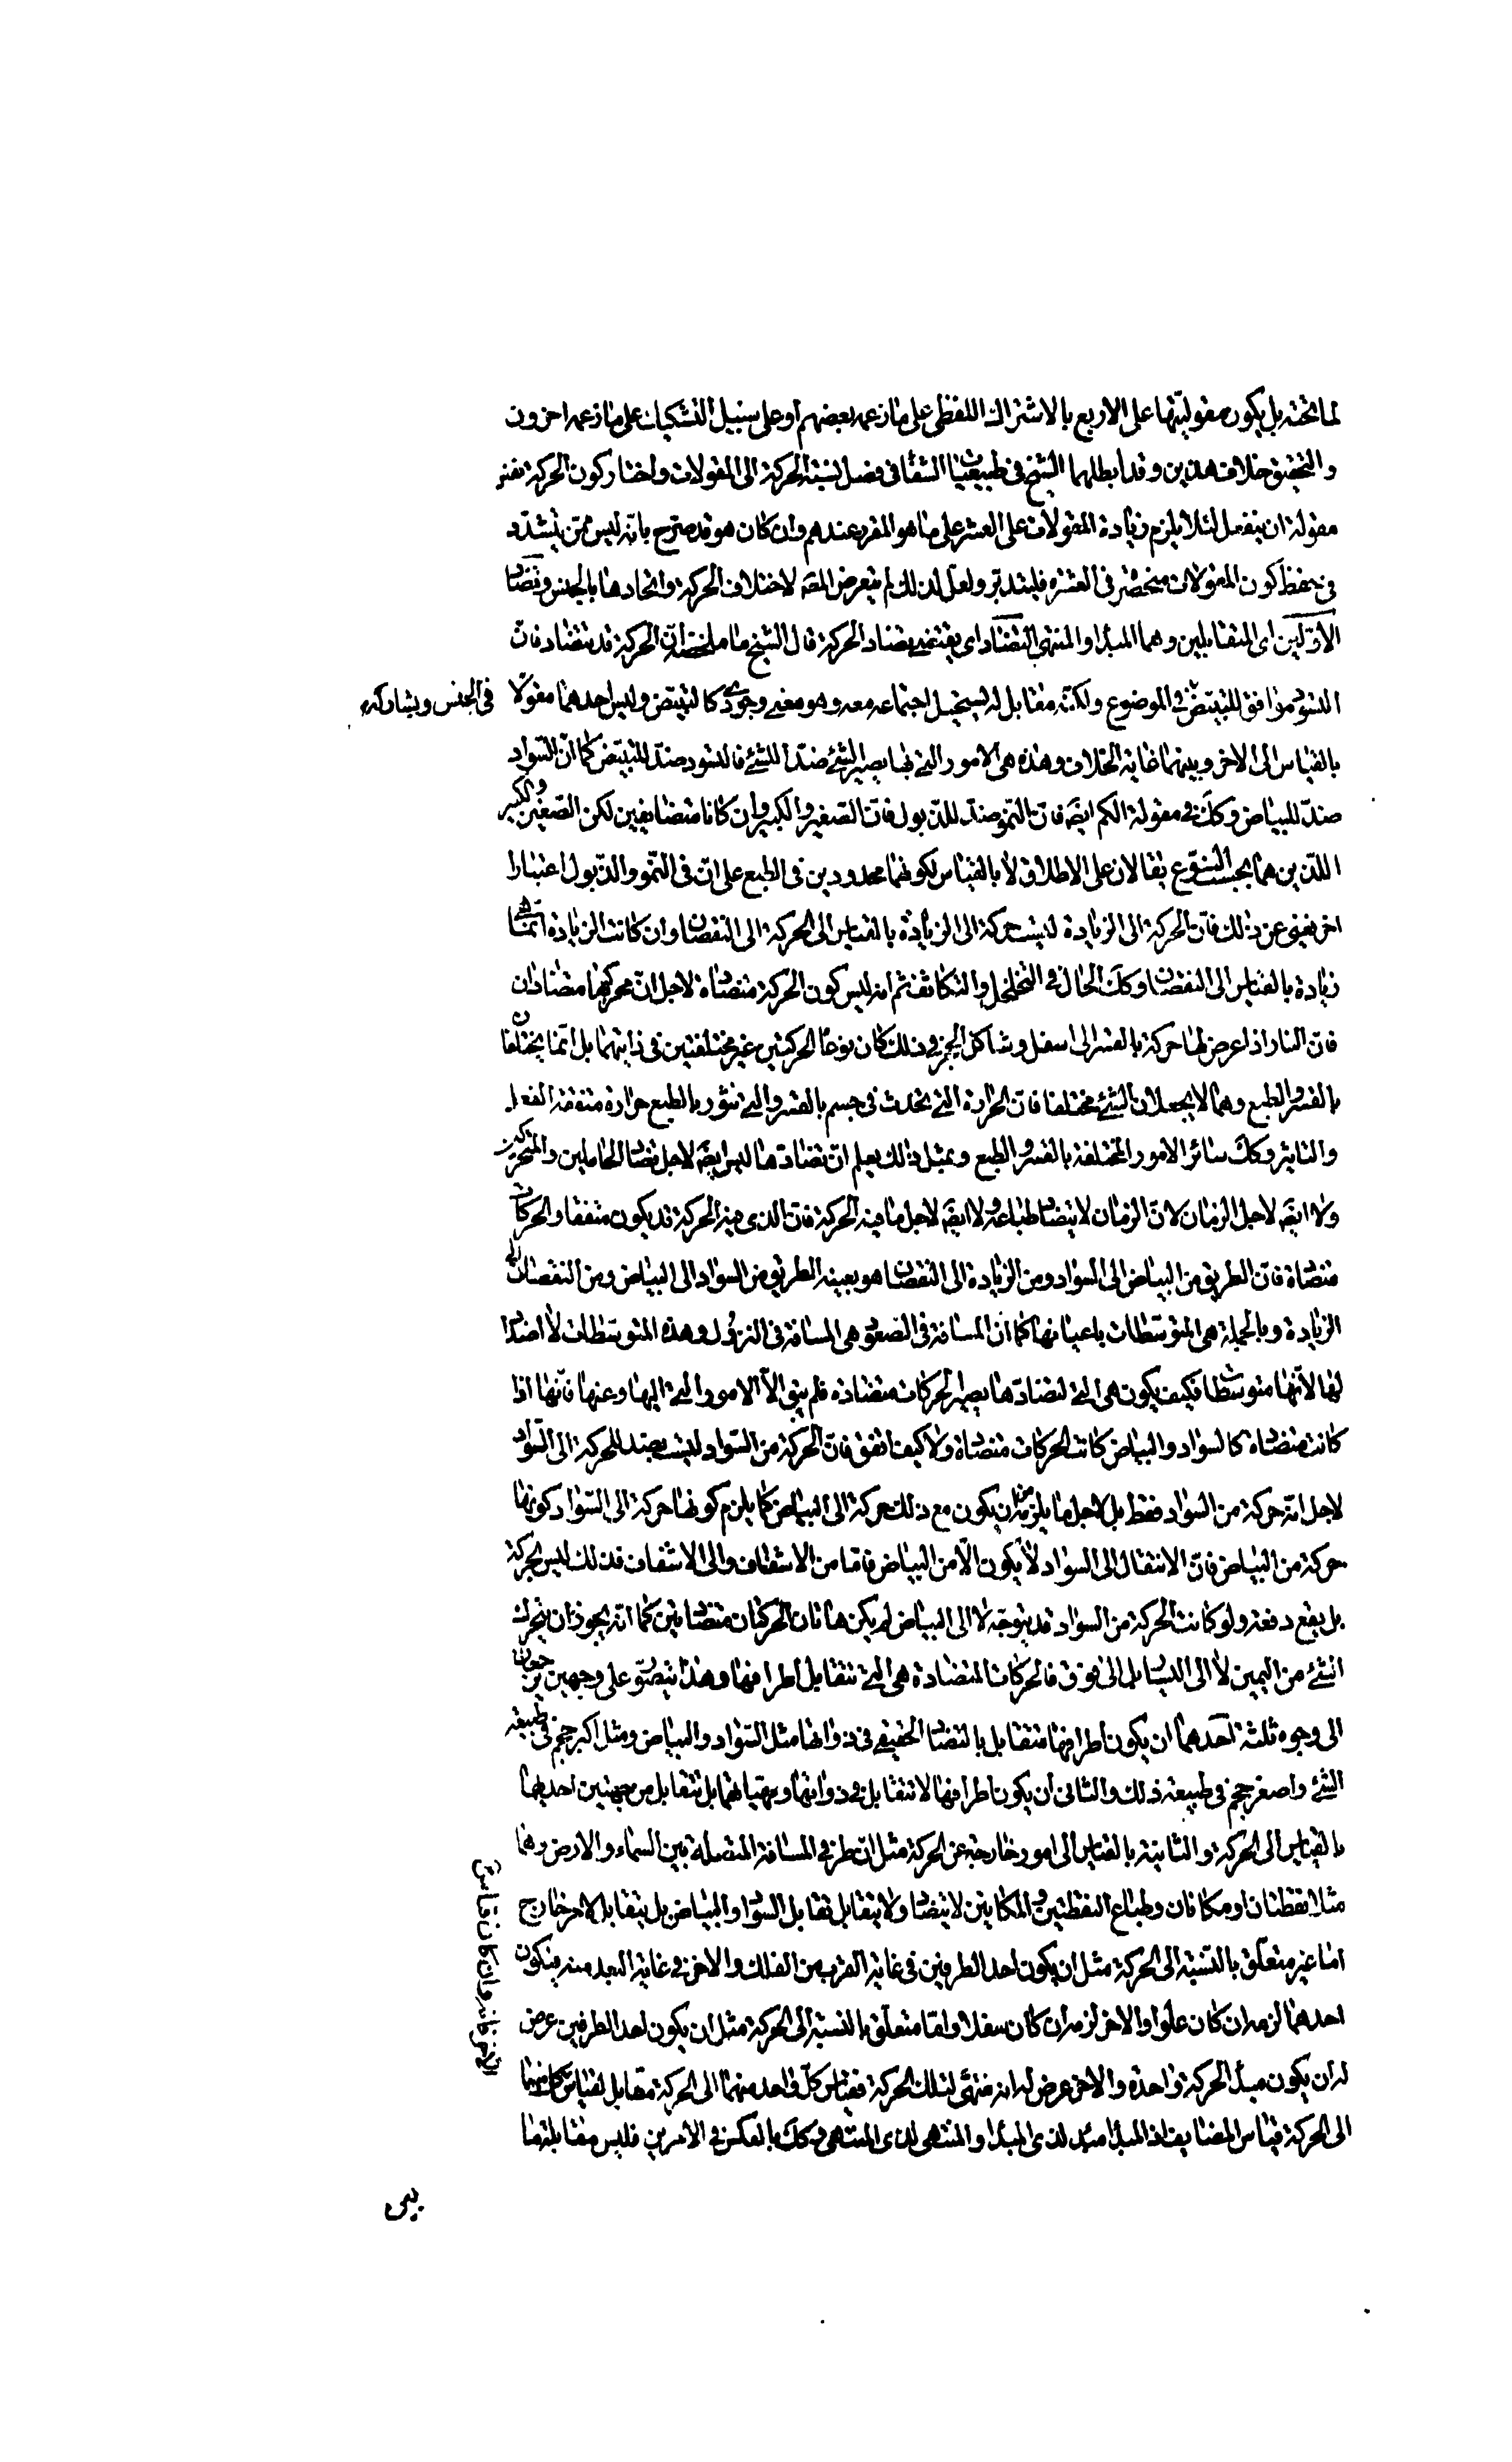 لما تحته بل يكون مقوليتها على الاربع بالاشتراك اللفظى على ما زعمه بعضهم او على سبيل التشكيك على ما زعمه اخرون
والتحقيق خلاف هذين وقد ابطلهما الشيخ فى طبيعيات الشفا فى فصل نسبة الحركة الى المقولات واختار كون الحركة نفس
مقولة ان ينفعل لئلا يلزم زيادة المقولات على العشر على ما هو المقرر عندهم وان كان هو قد صرح بانه ليس ممن يتشدد
فى حفظ كون المقولات منحصرة فى العشرة فليتدبر ولعل لذلك لم يتعرض المصـ لاختلاف الحركة واتحادها بالجنس وتضاد
الاولين اى المتقابلين وهما المبدا والمنتهى التضاد اى يقتضى تضاد الحركة قال الشيخ ما ملخصه ان الحركة قد يتضاد فان
التسود موافق للتبيض فى الموضوع ولكنه مقابل له يستحيل اجتماعه معه وهو معنى وجودى كالتبيض وليس احدهما مقولا
فى الجنس ويشاركه
بالقياس الى الاخر وبينهما غاية الخلاف وهذه هى الامور التى بها يصير الشئ ضدا للشئ فالتسود ضد للتبيض كما ان السواد
ضد للبياض وكك فى مقولة الكم ايضـ فان النمو ضد للذبول فان الصغير والكبير وان كانا متضايفين لكن الصغير والكبير
اللذين هما بحسب النوع يقالان على الاطلاق لا بالقياس لكونهما محدودين فى الطبع على ان فى النمو والذبول اعتبارا
اخر يغنى عن ذلك فان الحركة الى الزيادة ليست حركة الى الزيادة بالقياس الى الحركة الى النقصان وان كانت الزيادة انما هى
زيادة بالقياس الى النقصان وكك الحال فى التخلخل والتكاثف ثم انه ليس كون الحركة متضادة لاجل ان محركها متضادان
فان النار اذا عرض لها حركة بالقسر الى اسفل وشاكل الحجر فى ذلك كان نوعا الحركتين غير مختلفتين فى ذاتيهما بل انما يختلفان
بالقسر والطبع وهما لا يجعلان الشئ مختلفا فان الحرارة التى تحدث فى جسم بالقسر والتى تثور بالطبع حرارة متفقة الفعل
والتاثير وكك سائر الامور المختلفة بالقسر والطبع وبمثل ذلك يعلم ان تضادها ليس ايضـ لاجل تضاد الحاملين والمتحركين
ولا ايضـ لاجل الزمان لان الزمان لا يتضاد طباعه ولا ايضـ لاجل ما فيه الحركة فان الذى فيه الحركة قد يكون متفقا والحركات
متضادة فان الطريق من البياض الى السواد ومن الزيادة الى النقصان هو بعينه الطريق من السواد الى البياض ومن النقصان الى
الزيادة وبالجملة هى المتوسطات باعيانها كما ان المسافة فى الصعود هى المسافة فى النزول وهذه المتوسطات لا اضداد
لها لانها متوسطات فكيف يكون هى التى لتضادها يصير الحركات متضادة فلم يبق الا الامور التى اليها وعنها فانها اذا
كانت متضادة كالسواد والبياض كانت الحركات متضادة ولا كيف اتفق فان الحركة من السواد ليست بضد للحركة الى السواد
لاجل انه حركة من السواد فقط بل لاجل ما يلزمها ان يكون مع ذلك حركة الى البياض كما يلزم كونها حركة الى السواد كونها
حركة من البياض فان الانتقال الى السواد لا يكون الا من البياض فاما من الاشفاف والى الاشفاف فذلك ليس بحركة
بل يقع دفعة ولو كانت الحركة من السواد قد يتوجه لا الى البياض لم يكن هاتان الحركتان متضادتين كما انه يجوز ان يتحرك
الشئ من اليمين لا الى اليسار بل الى فوق فالحركات المتضادة هى التى تتقابل اطرافها وهذا يتصور على وجهين يرجعان
الى وجوه ثلثة احدهما ان يكون اطرافها متقابل بالتضاد الحقيقى فى ذواتها مثل السواد والبياض ومثل اكبر حجم فى طبيعة
الشئ واصغر حجم فى طبيعة ذلك والثانى ان يكون اطرافها لا تتقابل فى ذواتها وماهياتها بل تتقابل من جهتين احديهما
بالقياس الى الحركة والثانية بالقياس الى امور خارجة عن الحركة مثل ان طرفى المسافة المتصلة بين السماء والارض وهما
مثلا نقطتان او مكانان وطباع النقطتين والمكانين لا يتضاد ولا يتقابل تقابل السواد والبياض بل يتقابل لامر خارج
اما غير متعلق بالنسبة الى الحركة مثل ان يكون احد الطرفين فى غاية القرب من الفلك والاخر فى غاية البعد منه فيكون
احدهما لزمه ان كان علوا والاخر لزمه ان كان سفلا واما متعلق بالنسبة الى الحركة مثل ان يكون احد الطرفين عرض
له ان يكون مبدأ الحركة واحدة والاخر عرض له انه منتهى لتلك الحركة فقياس كل واحد منهما الى الحركة مقابل لقياس كل منهما
الى الحركة قياس المضايف اذ المبدا مبدا لذى المبدا والمنتهى لذى المنتهى وكك بالعكس فى الامرين فليس مقابلتهما
الاخر فانه وان كان قياس